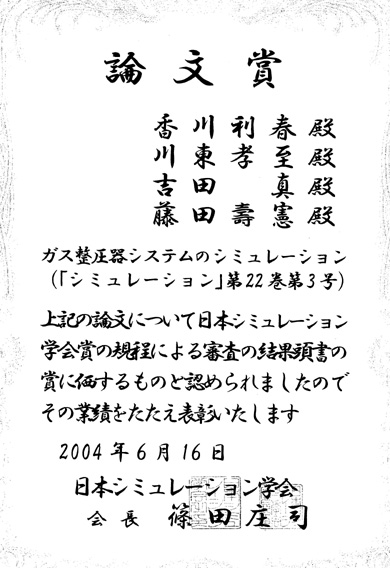 論文賞
香川利春殿
川東孝至殿
吉田真殿
藤田壽憲殿
ガス整圧器システムのシミュレーション
(「シミュレーション」第22巻第3号)
上記の論文について日本シミュレーション
学会賞の規程による審査の結果頭書の
賞に価するものと認められましたので
その業績をたたえ表彰いたします
2004年6月16日
日本シミュレーション学会
会長 篠田庄司